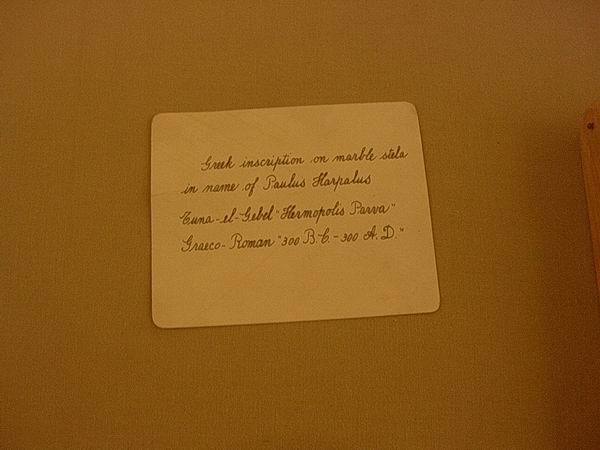 Greek inscription on marble stela
in name of Paulus Harpalus
Tuna-el-Gebel "Hermopolis Parva"
Graeco-Roman "300 B.C.-300 A.D."